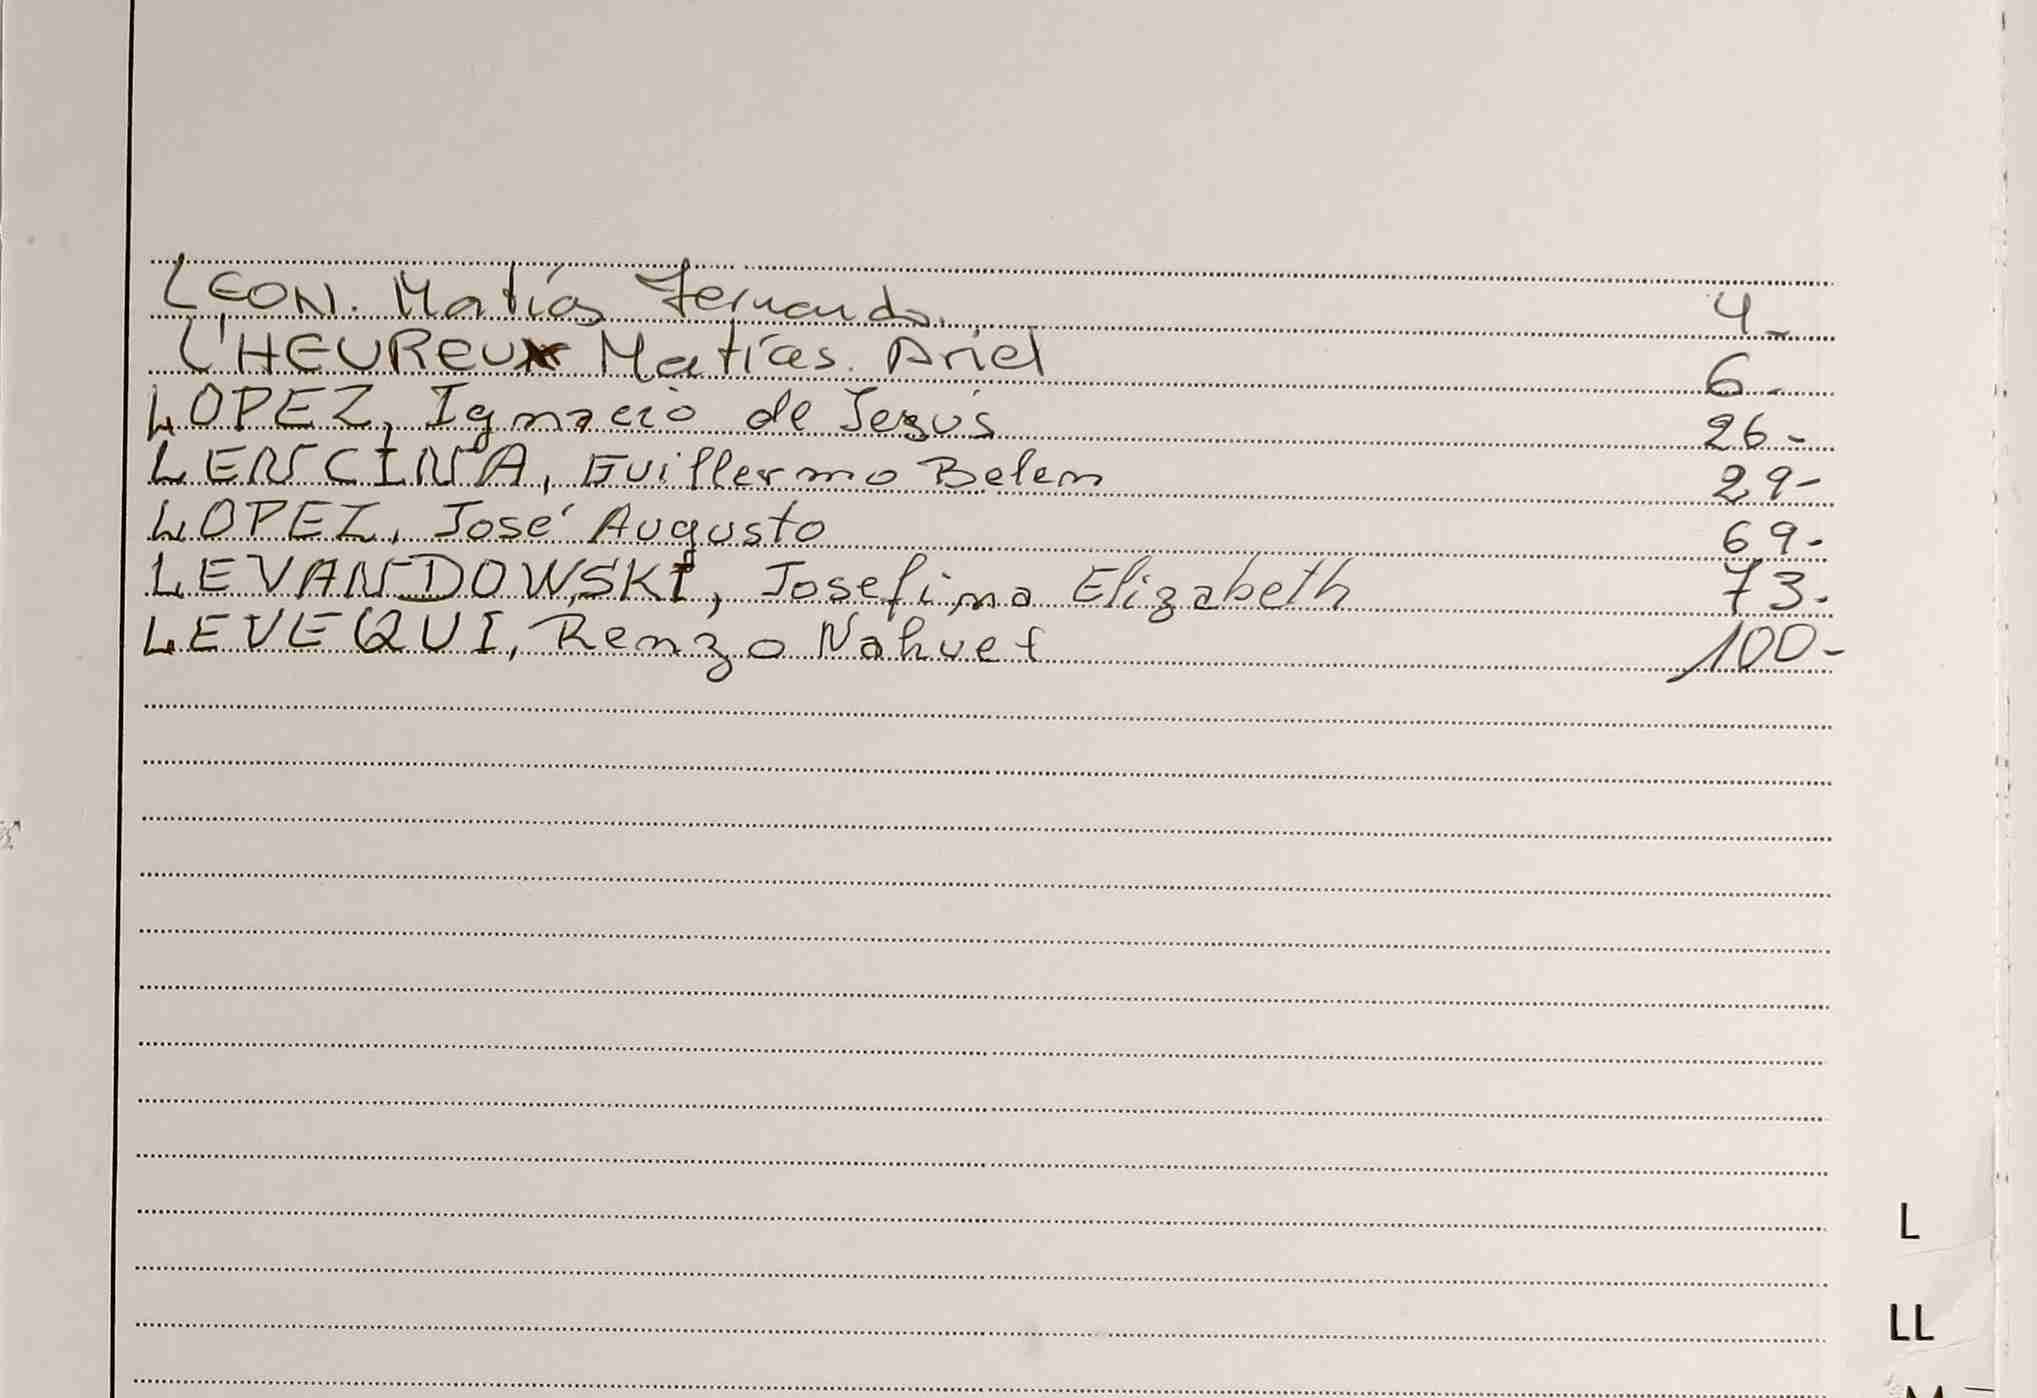 LEON. Matías Fernando. 4-
L'HEUREUX Matías. Ariel 6-
LOPEZ, Ignacio de Jesús 26-
LENCINA, Guillermo Belen 29-
LOPEZ, José Augusto 69-
LEVANDOWSKI, Josefina Elizabeth 73-
LEVEQUI, Renzo Nahuel 100-
L
LL